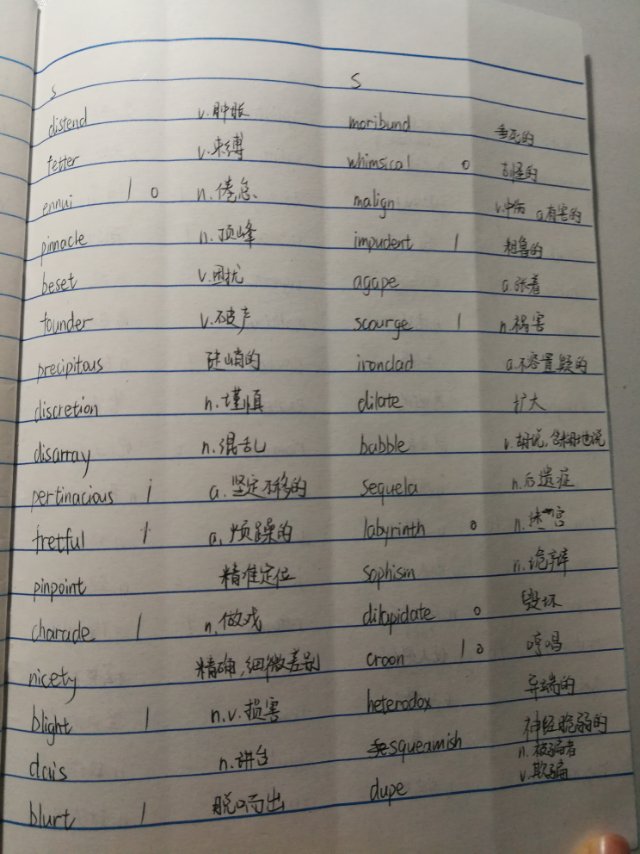 s s
distend v.肿胀 moribund 垂死的
fetter v.束缚 whimsical o 古怪的
ennui 1 o n.倦怠. malign v.中伤 a.有害的
pinnacle n.顶峰 impudent 1 粗鲁的
beset v.困扰 agape a.张着
founder v.破产 scourge 1 n.祸害
precipitous 陡峭的 ironclad a.不容置疑的
discretion n.谨慎 dilate 扩大
disarray n.混乱 babble v.胡说,含糊地说
pertinacious 1 a.坚定不移的 sequela n.后遗症
fretful 1 a.烦躁的 labyrinth o n.迷宫
pinpoint 精准定位 sophism n.诡辩
charade 1 n.做戏 dilapidate o 毁坏
nicety 精确,细微差别 croon 1 o 哼唱
blight 1 n.v.损害 heterodox 异端的
dais n.讲台 squeamish 神经脆弱的
blurt 1 脱口而出 dupe n.被骗者
v.欺骗